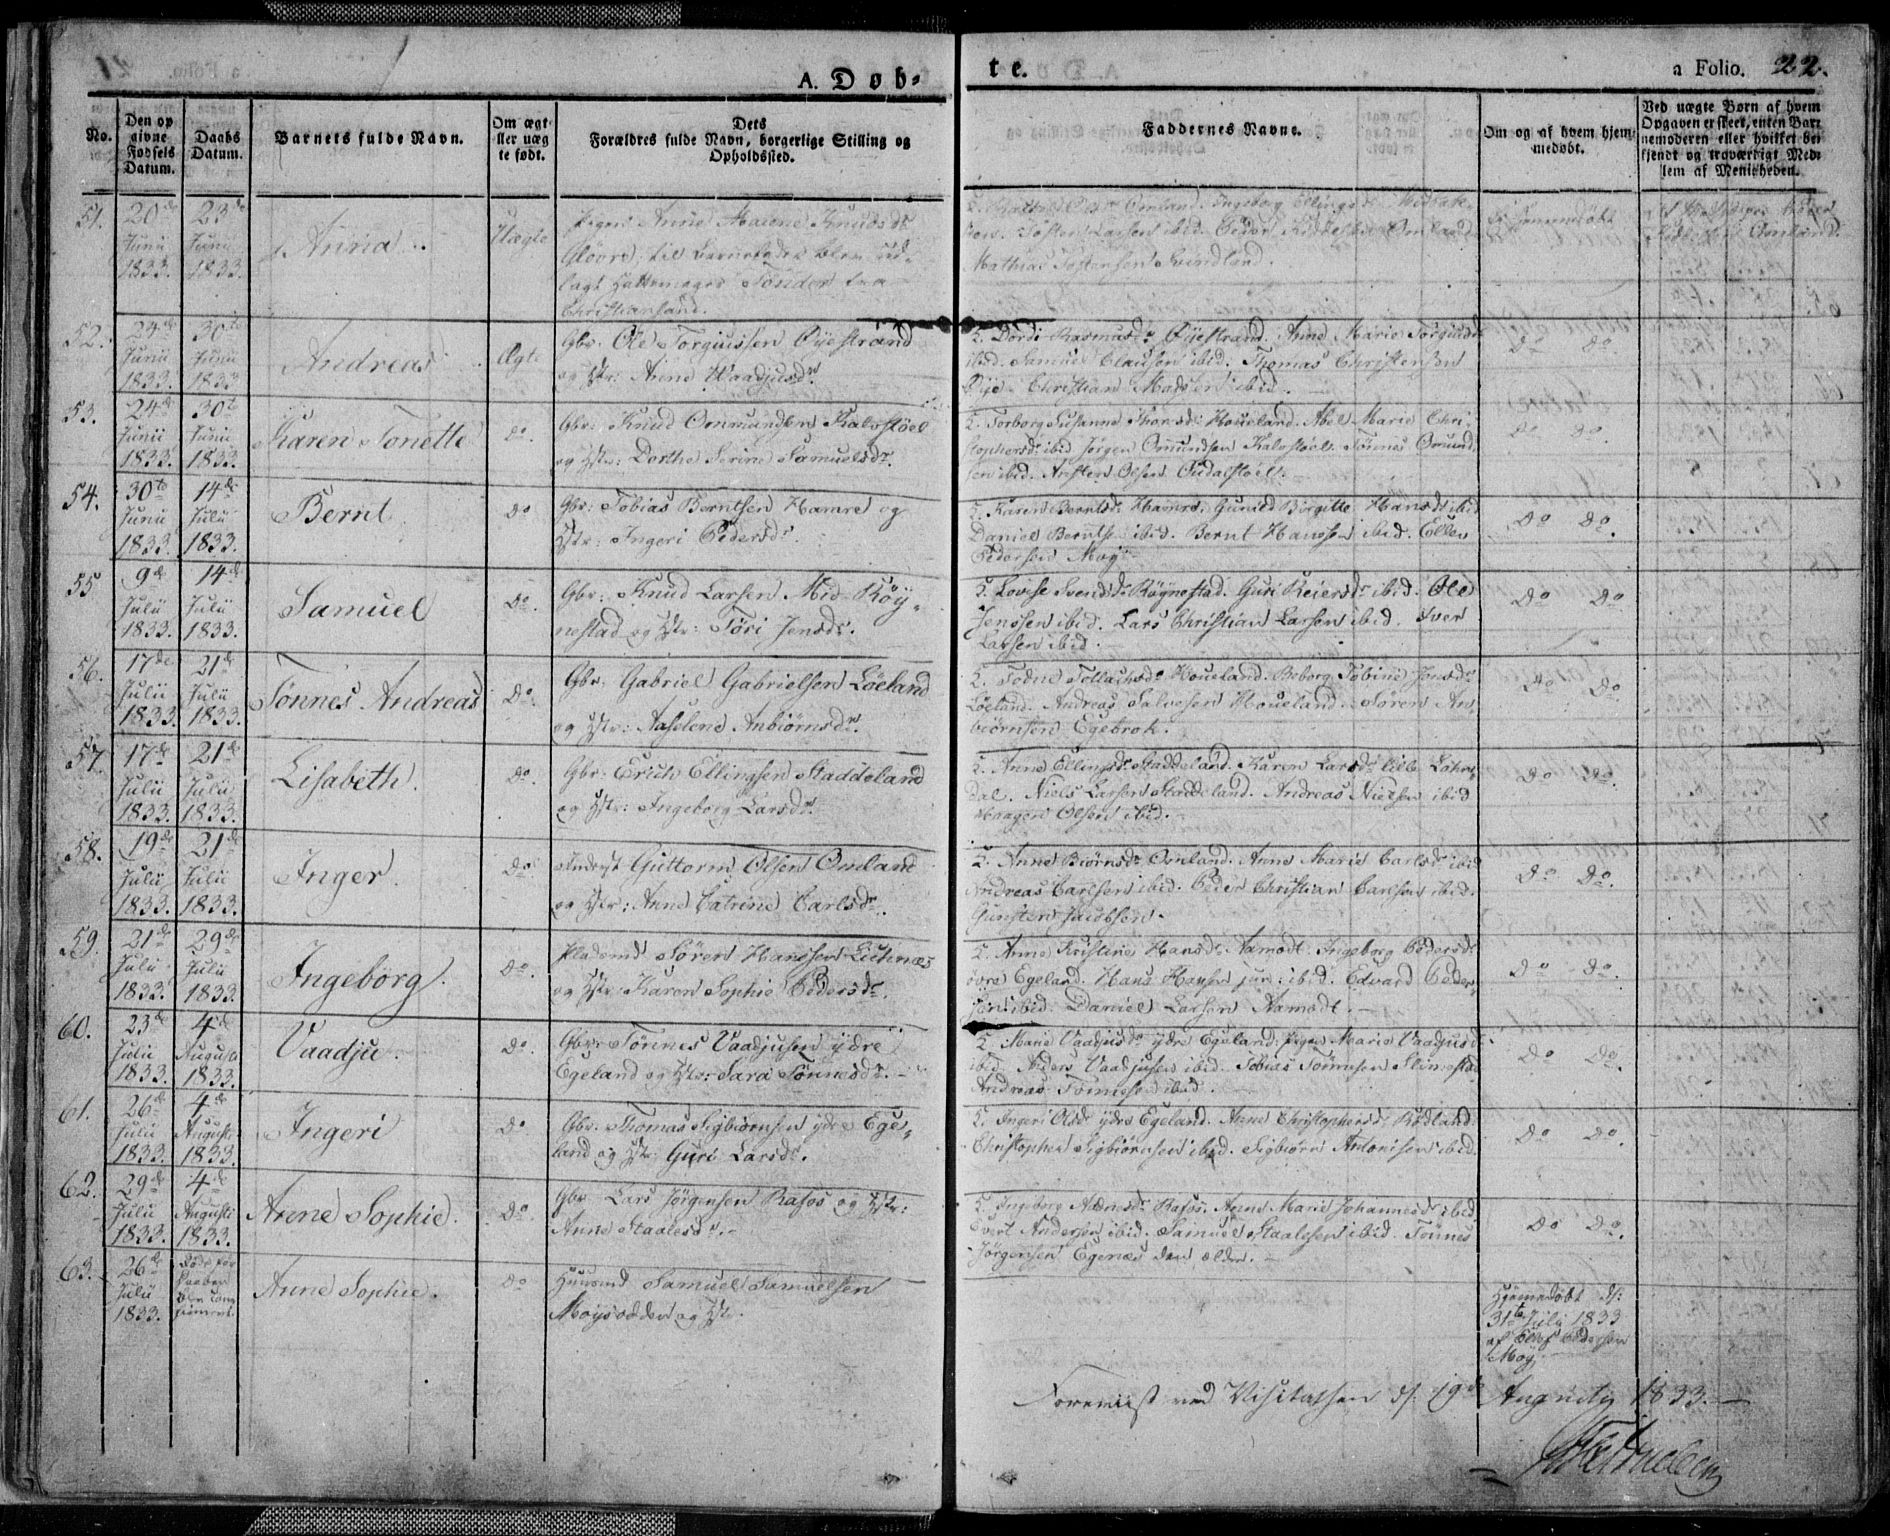 A. Døb-
te.
a Folio. 22.
No.
Den op
givne
Fødsels
Datum.
Daabs
Datum.
Barnets fulde Navn.
Om ægt
eller uæg
te født.
Dets
Forældres fulde Navn, borgerlige Stilling og
Opholdssted.
Faddernes Navne.
Om og af hvem hjem-
medøbt.
Ved uægte Børn af hvem
Opgaven er skeet, enten Bar-
nemoderen eller hvilket be-
kjendt og troværdigt Med-
lem af Menigheden.
51.
20de
Junii
1833.
23de
Junii
1833.
Anna
Uægte
Pigen Anne Malene Knudsdr
til Barnefader blev ud-
lagt Hattemager Tønder fra
Christiansand.
Ingeborg Ellingsdr
Tosten Larsen ibid. Peder Omland
Mathias Tostensen Svindland.
Hjemmedøbt
Omland.
52.
24de
Junii
1833.
30te
Junii
1833
Andreas
Ægte
Gbr: Ole Torgiussen Øyestrand
og Hstr: Anne Waadjusdr.
2. Dordi Rasmusdr Øyestrand. Anne Marie Torgiusdr
ibid. Samuel Clausen ibid. Thomas Christensen
Øie. Christian Madsen ibid.
Do Do
53.
24de
Junii
1833.
30te
Junii
1833.
Karen Tonette
do.
Gbr: Knud Ommundsen Kalvstøel
og Hstr: Dorthe Serine Samuelsdr.
2. Torborg Susanne Thorsdr Houeland. Abel Marie Chri-
stophersdr ibid. Jørgen Omundsen Kalvstøel. Tønnes Omund-
sen ibid. Olsen
Do Do.
54.
30te
Junii
1833.
14de
Julii
1833.
Bernt
Do
Gbr: Tobias Berntsen Hamre og
Hstr: Ingeri Pedersdr.
5. Karen Berntsdr Hamre. Gunild Birgitte Hansdr ibid
Daniel Berntsen ibid. Bernt Hansen ibid. Ellev
Pedersen Moy.
Do Do.
55
9de
Julii
1833.
14de
Julii
1833.
Samuel
Do.
Gbr: Knud Larsen Mid-Røy-
nestad og Hstr: Tøri Jensdr.
5. Lovise Svendsdr Røynestad. Guri Reiersdr ibid. Ole
Jenssen ibid. Lars Christian Larsen ibid. Iver
Larsen ibid.
Do Do.
56.
17de
Julii
1833.
21de
Julii
1833.
Tønnes Andreas
Do.
Gbr: Gabriel Gabrielsen Løeland
og Hstr: Aaselene Anbiørnsdr.
2. Todne Tollachsdr Houeland. Beborg Tobine Jonsdr
Løeland. Andreas Salvesen Houeland. Søren An-
biørnsen Egebrok.
Do Do.
57.
17de
Julii
1833.
21de
Julii
1833.
Lisabeth.
Do.
Gbr: Erich Ellingsen Staddeland
og Hstr: Ingeborg Larsdr.
2. Anne Ellingsdr Staddeland. Karen Larsdr
dal. Niels Larsen Staddeland. Andreas Nielsen ibid
Haagen Olsen ibid.
Do Do.
58.
19de
Julii
1833.
21de
Julii
1833.
Inger.
Do.
Guttorm Olsen Omland
og Hstr: Anne Catrine Carlsdr.
2. Anne Biørnsdr Omland. Anne Marie Carlsdr ibid
Andreas Carlsen ibid. Peder Christian Carlsen ibid.
Gunsten Jacobsen.
Do Do.
59.
21de
Julii
1833.
29de
Julii
1833.
Ingeborg.
Do.
Pladsmd Søren Hanssen
og Hstr: Karen Sophie Pedersdr.
2. Anne Kristine Hansdr Aamodt. Ingeborg Pedersdr
øvre Egeland. Hans Hansen jun: ibid. Edvard Peder-
sen ibid. Daniel Larsen Aamodt.
Do Do.
60.
23de
Julii
1833.
4de
Augusti
1833.
Vaadju.
Do.
Gbr: Tønnes Vaadjusen ydre
Egeland og Hstr: Sara Tønnesdr.
2. Mane Vaadjusdr ydre Egeland. Pigen Marie Vaadjusdr
ibid. Anders Vaadjusen ibid. Tobias Tønnesen
Andreas Tønnesen ibid.
Do Do.
61.
26de
Julii
1833.
4de
Augusti
1833.
Ingeri
Do.
Gbr. Thomas Sigbiørnsen ydre Ege-
land og Hstr: Guri Larsdr.
2. Ingeri Olsdr ydre Egeland. Anne Christophersdr Rødland.
Christopher Sigbiørnsen ibid. Sigbiørn Antonisen ibid.
Do Do.
62.
29de
Julii
1833.
4de
Augusti
1833.
Arene Sophie.
Do.
Gbr Lars Jørgensen Rafos og Hstr:
Anne Staalesdr.
2. Ingeborg Rafos. Anne Marie Johannesdr ibid
Evert Andersen ibid. Samuel Staalesen ibid. Tønnes
Jørgensen Egenæs den ældre.
Do Do.
63.
26de
Julii
1833.
Døde før
Daaben
blev
Anne Sophie.
Do
Huusmd Samuel Samuelsen
Moysodden og Hstr.
Hjemmedøbt d:
31te Julii 1833
af Ellef Pedersen
Moy.
Foreviist ved Visitatsen d. 19de Augusti 1833.